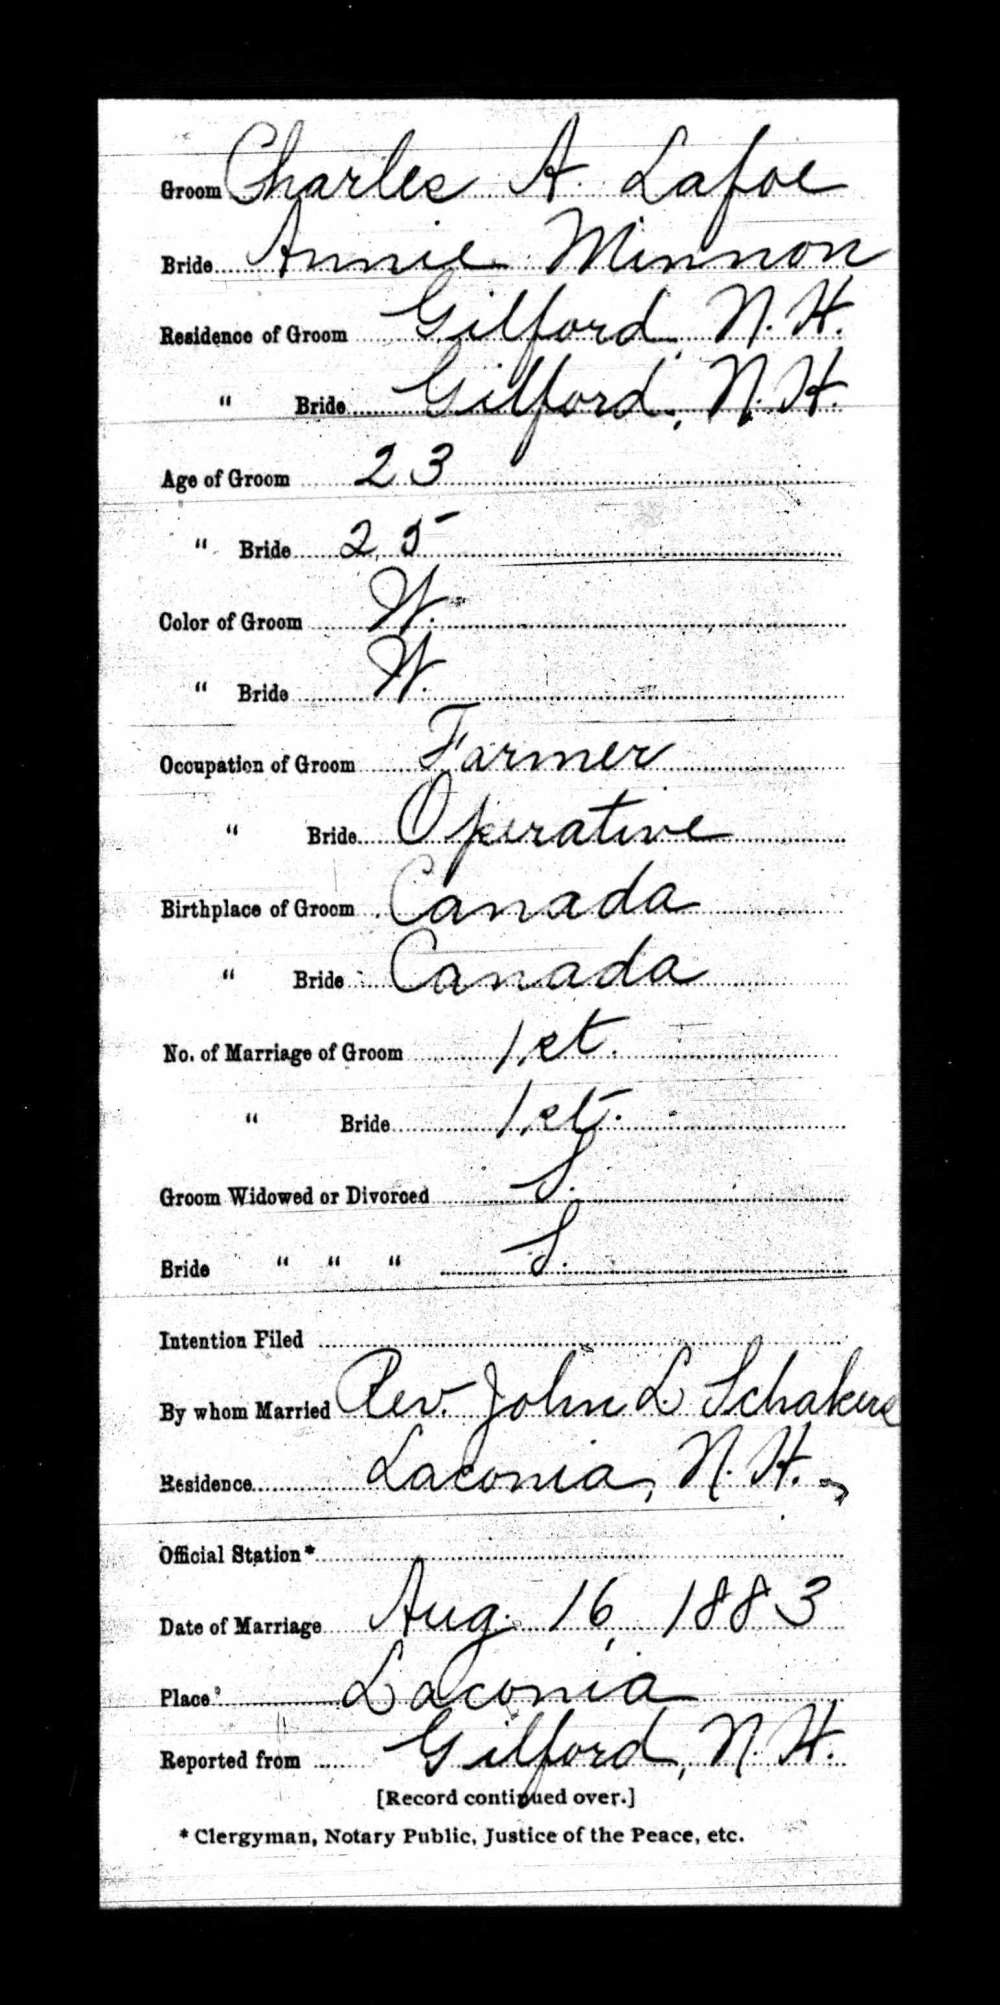 Groom Charles A. Lafoe
Bride Annie Minnon
Residence of Groom Gilford, N.H.
" Bride Gilford, N.H.
Age of Groom 23
" Bride 25
Color of Groom W.
" Bride W.
Occupation of Groom Farmer
" Bride Operative
Birthplace of Groom Canada
" Bride Canada
No. of Marriage of Groom 1st.
" Bride 1st.
Groom Widowed or Divorced S.
Bride " " " S.
Intention Filed
By whom Married Rev. John L. Schakers
Residence Laconia, N.H.
Official Station*
Date of Marriage Aug. 16, 1883
Place Laconia
Reported from Gilford, N.H.
[Record continued over.]
* Clergyman, Notary Public, Justice of the Peace, etc.